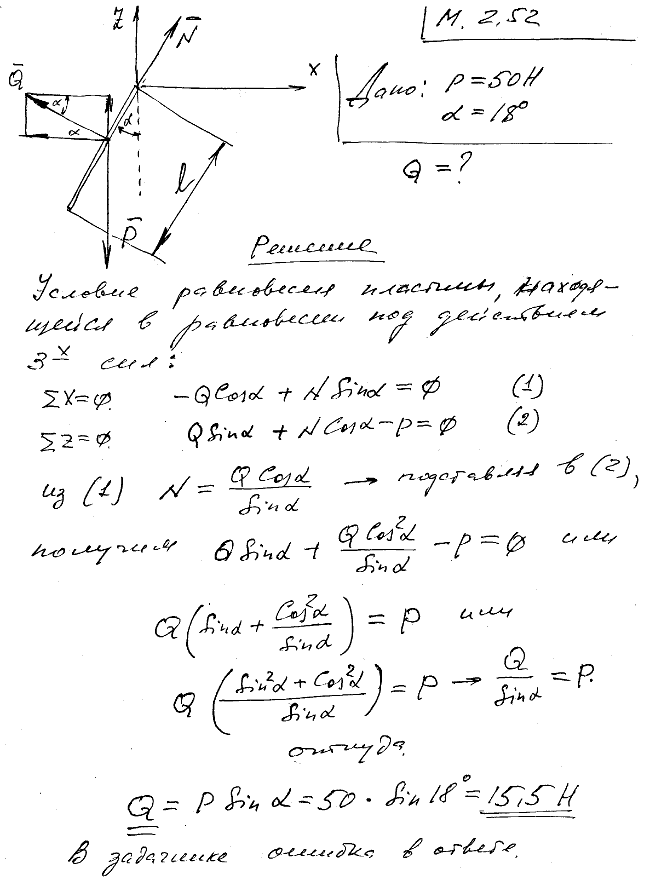 М. 2,52
z N̄
x
Q̄
α
α
α
l
P̄
Дано: P = 50 Н
α = 18°
Q = ?
Решение
Условие равновесия пластины, находя-
щейся в равновесии под действием
3-х сил:
ΣX=0. -Q Cosα + N Sinα = 0 (1)
Σz=0. Q Sinα + N Cosα - P = 0 (2)
из (1) N = Q Cosα / Sinα → подставляя в (2),
получим Q Sinα + Q Cos²α / Sinα - P = 0 или
Q (Sinα + Cos²α / Sinα) = P или
Q ((Sin²α + Cos²α) / Sinα) = P → Q / Sinα = P.
откуда.
Q = P Sin α = 50 · Sin 18° = 15,5 Н
В задачнике ошибка в ответе.